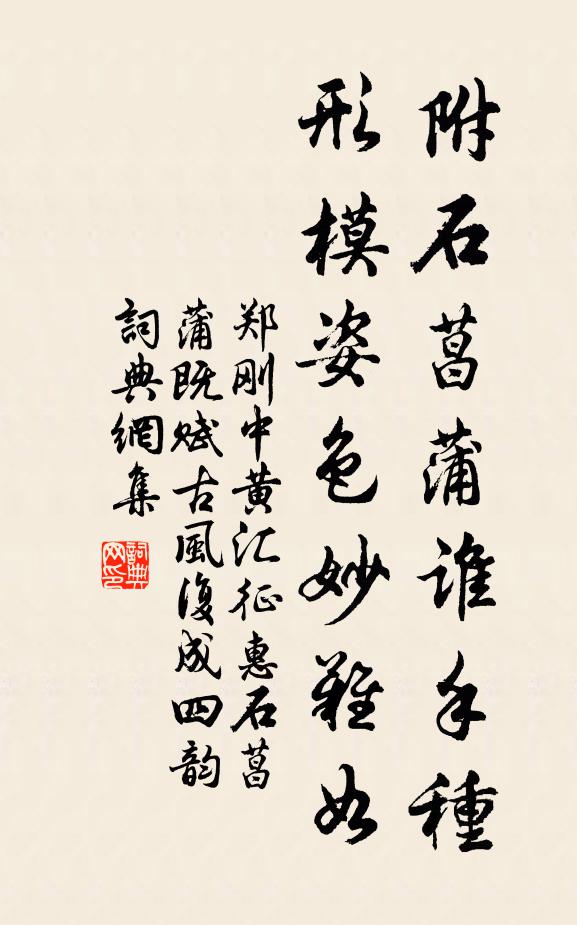 附石菖蒲谁手種
形模姿色妙難如
郑刚中黄汇征惠石菖
蒲既赋古風復成四韵
詞典網集
詞典網印